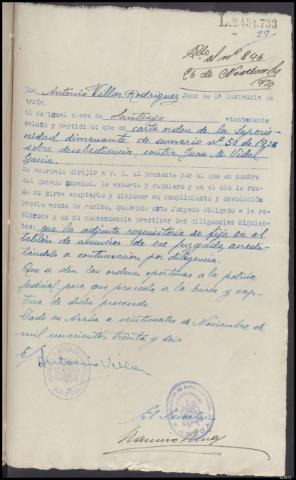 L.2451.733
29
Rdo el nº 843
26 de Noviembre
Don Antonio Villar Rodriguez Juez de 1a Instancia de
Arzúa.
Al de igual clase de Santiago atentamente
saludo y participo: que en carta orden de la Superio-
ridad, dimanante de sumario nº 50 de 1936
sobre desobediencia, contra Juan M. Vidal
Garcia
He acordado dirigir a V. S. el presente por el que en nombre
del Estado Español, le exhorto y requiero y en el mio le rue-
go se sirva aceptarlo y disponer su cumplimiento y devolución
previo acuse de recibo, quedando este Juzgado obligado a la re-
ciproca y en su consecuencia practicar las diligencias siguien-
tes: que la adjunta requisitoria se fije en el
tablón de anuncios de ese juzgado, acredi-
tándolo a continuacion por diligencia.
Que se den las ordenes oportunas a la policia
judicial para que proceda a la busca y cap-
tura de dicho procesado.
Dado en Arzúa a veinticuatro de Noviembre de
mil novecientos treinta y seis
Antonio Villar
El Secretario
ARZUA